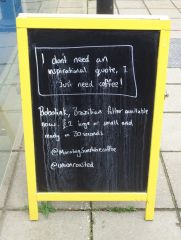 I don't need an
inspirational quote, I
Just need coffee!
Bobolink, Brazilian filter available
now. £2 large or small and
ready in 30 seconds
@unionroasted